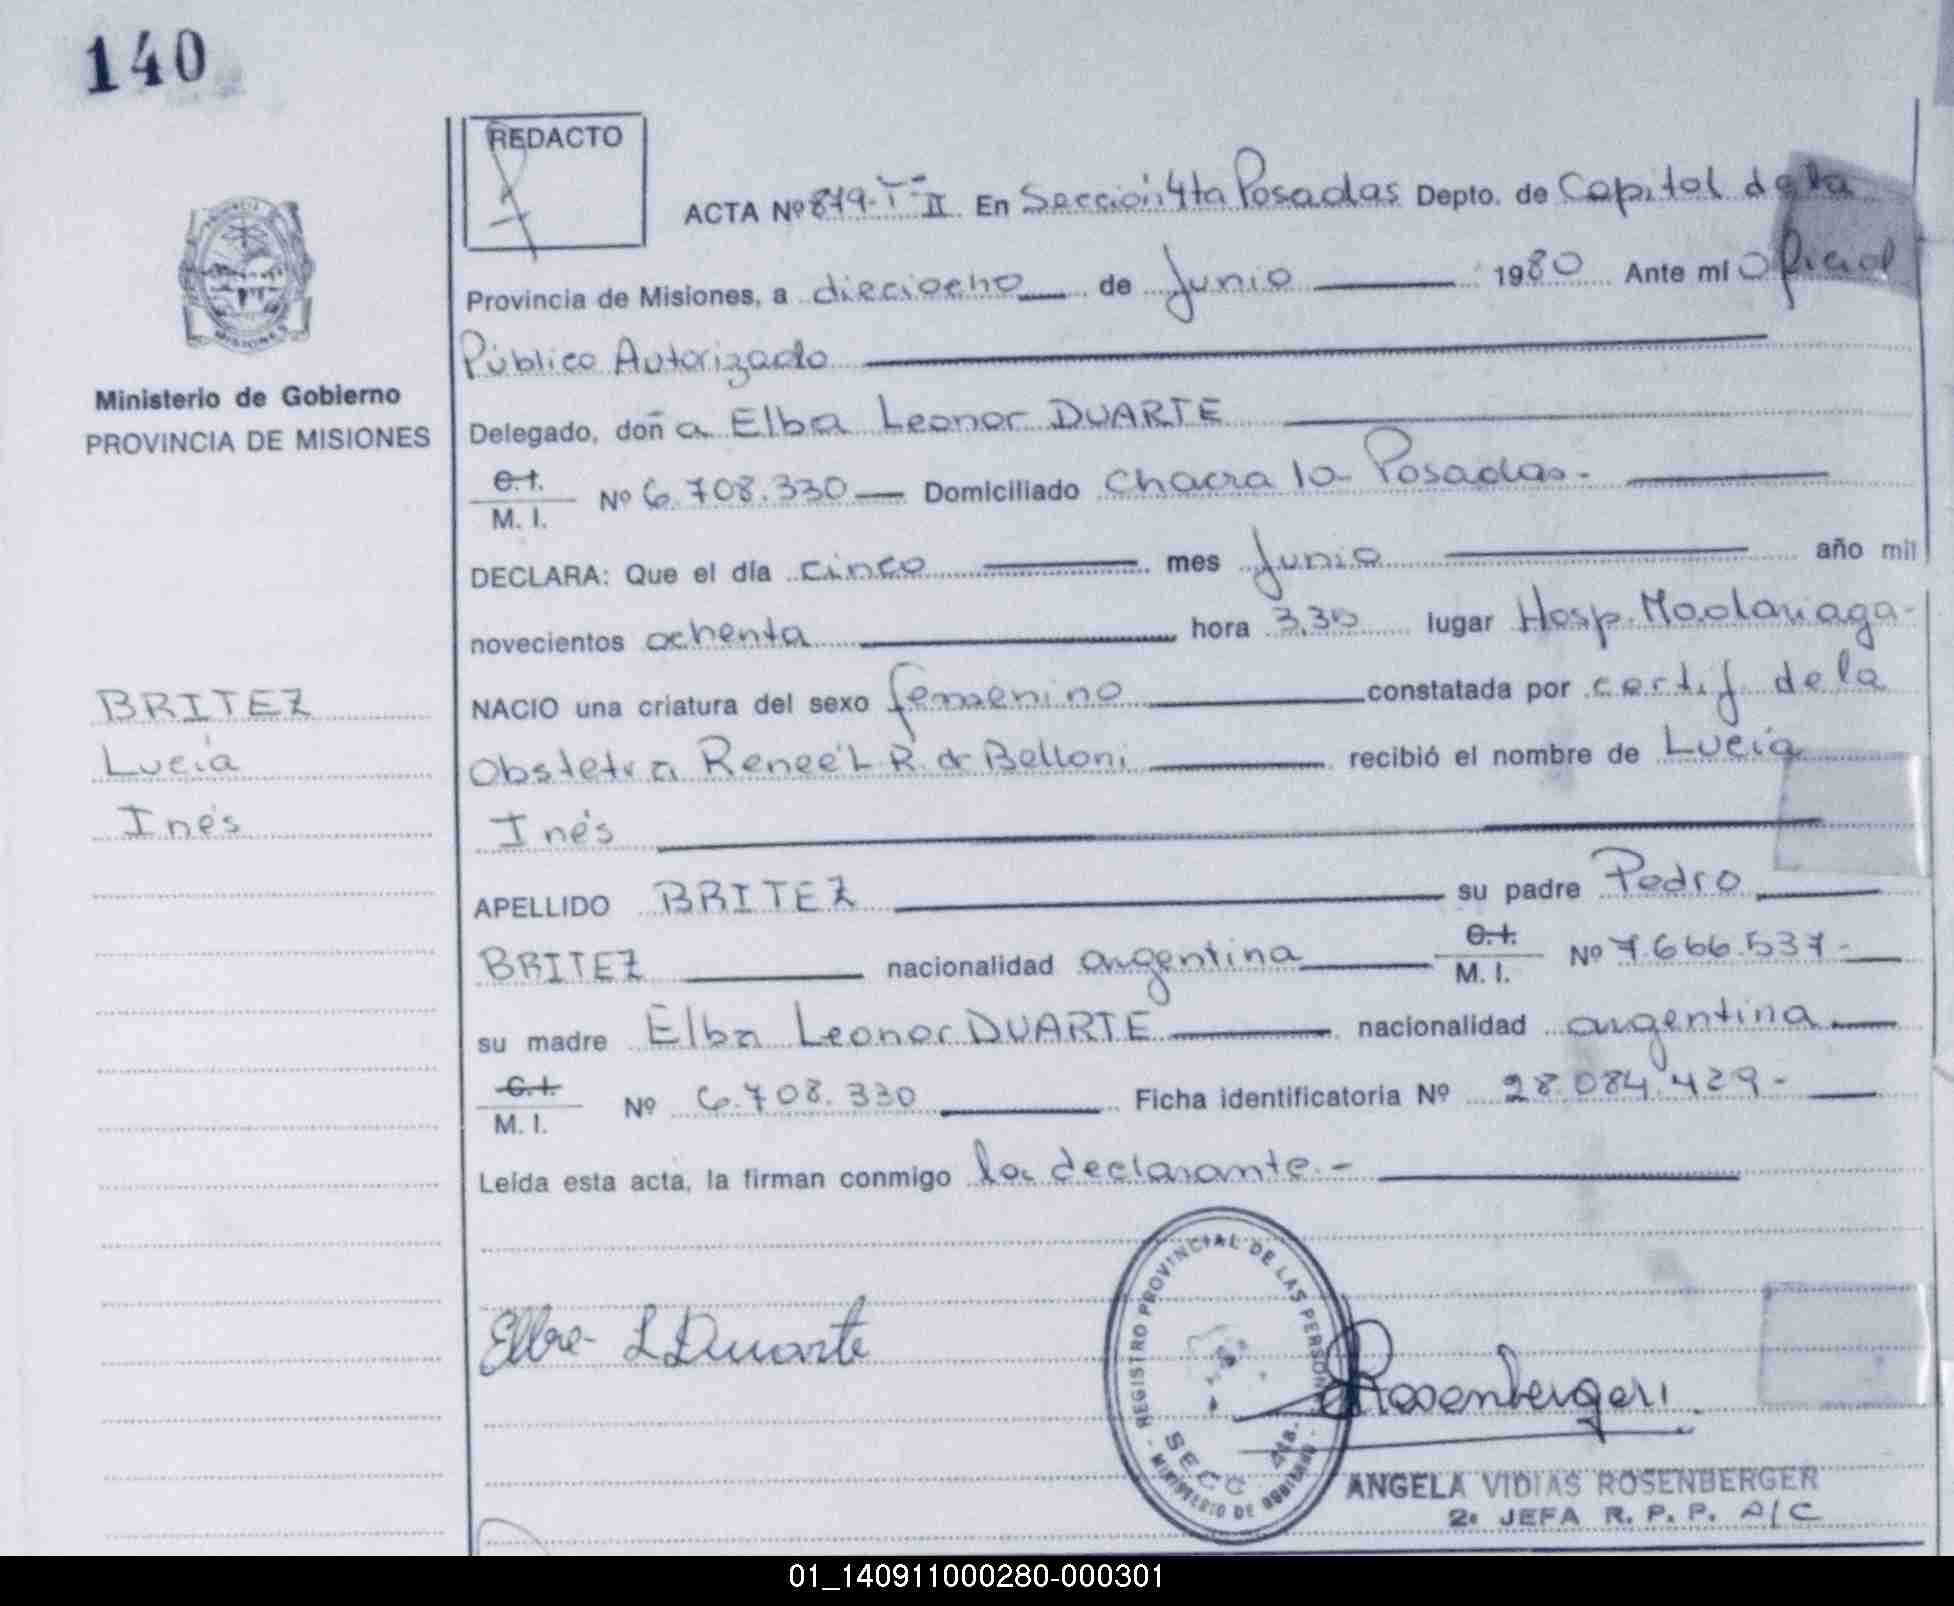 140
REDACTO
ACTA Nº 879-T-II En Sección 4ta Posadas Depto. de Capital de la
Provincia de Misiones, a dieciocho de Junio 1980 Ante mí Oficial
Público Autorizado
Ministerio de Gobierno
PROVINCIA DE MISIONES
Delegado, doña Elba Leonor DUARTE
C.I.
M. I. Nº 6.708.330 Domiciliado Chacra 10- Posadas-
DECLARA: Que el día cinco mes Junio año mil
novecientos ochenta hora 3.30 lugar Hosp. Madariaga-
BRITEZ
Lucía
Inés
NACIO una criatura del sexo femenino constatada por certif de la
Obstetra Reneé L R de Belloni recibió el nombre de Lucía
Inés
APELLIDO BRITEZ su padre Pedro
BRITEZ nacionalidad argentina C.I. M. I. Nº 7.666.537-
su madre Elba Leonor DUARTE nacionalidad argentina
C.I.
M. I. Nº 6.708.330 Ficha identificatoria Nº 28.084.429-
Leída esta acta, la firman conmigo la declarante.-
Elba L Duarte
REGISTRO PROVINCIAL DE LAS PERSONAS
SECC 4ta.
MINISTERIO DE GOBIERNO
Rosenberger
ANGELA VIDIAS ROSENBERGER
2ª JEFA R. P. P. A/C
01_140911000280-000301